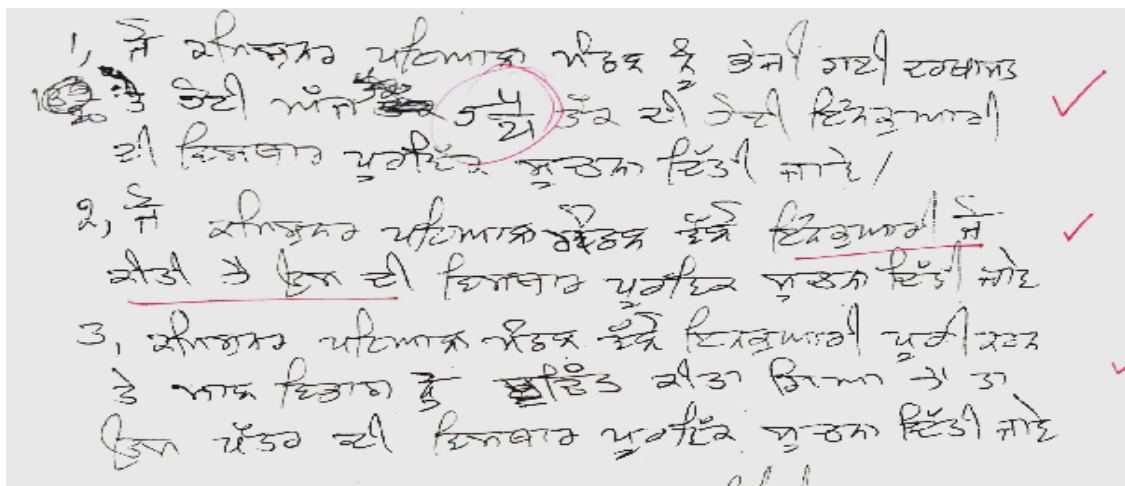 1, ਜੋ ਕਮਿਸ਼ਨਰ ਪਟਿਆਲਾ ਮੰਡਲ ਨੂੰ ਭੇਜੀ ਗਈ ਦਰਖਾਸਤ
ਤੇ ਹੋਈ ਅੱਜ 5 4/21 ਤੱਕ ਦੀ ਹੋਈ ਇੰਨਕੁਆਰੀ
ਦੀ ਵਿਸਥਾਰ ਪੂਰਵਿਕ ਸੂਚਨਾ ਦਿੱਤੀ ਜਾਵੇ/
2, ਜੋ ਕਮਿਸ਼ਨਰ ਪਟਿਆਲਾ ਮੰਡਲ ਵੱਲੋਂ ਇੰਨਕੁਆਰੀ ਜੋ
ਕੀਤੀ ਹੈ ਉਸ ਦੀ ਵਿਸਥਾਰ ਪੂਰਵਿਕ ਸੂਚਨਾ ਦਿੱਤੀ ਜਾਵੇ
3, ਕਮਿਸ਼ਨਰ ਪਟਿਆਲਾ ਮੰਡਲ ਵੱਲੋਂ ਇਨਕੁਆਰੀ ਪੂਰੀ ਕਰਨ
ਤੇ ਮਾਲ ਵਿਭਾਗ ਨੂੰ ਕੀਤਾ ਗਿਆ ਹੈ ਤਾ
ਉਸ ਪੱਤਰ ਦੀ ਵਿਸਥਾਰ ਪੂਰਵਿਕ ਸੂਚਨਾ ਦਿੱਤੀ ਜਾਵੇ